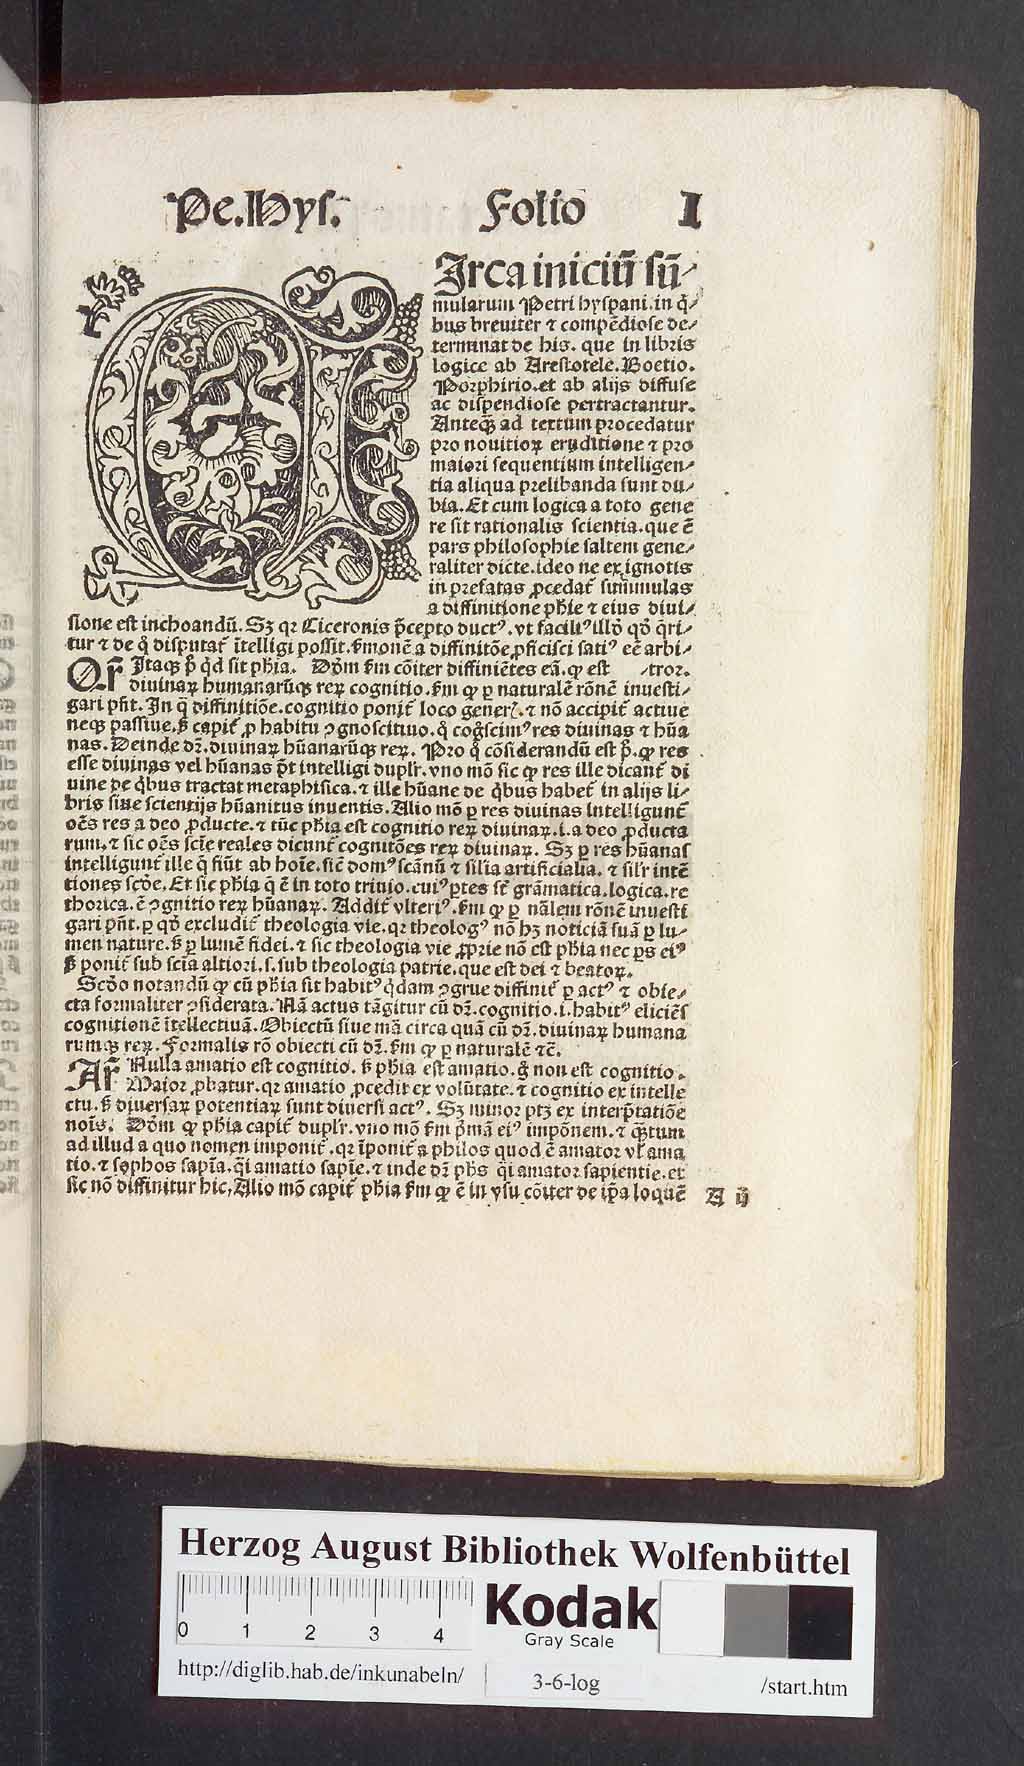 Pe.Hyſ. Folio I
CIrca iniciū ſū-
mularum Petri hyſpani.in q̄-
bus breuiter ⁊ compēdioſe de-
terminat de his. que in libris
logice ab Areſtotele.Boetio.
Porphirio.et ab alijs diffuſe
ac diſpendioſe pertractantur.
Anteq̄ꝫ ad textum procedatur
pro nouitioꝝ eruditione ⁊ pro
maiori ſequentium intelligen-
tia aliqua prelibanda ſunt du-
bia.Et cum logica a toto gene
re ſit rationalis ſcientia.que ē
pars philoſophie ſaltem gene-
raliter dicte.ideo ne ex ignotis
in prefatas ꝓcedat̄ ſummulas
a diffinitione phīe ⁊ eius diui-
ſione eſt inchoandū.Sꝫ qꝛ Ciceronis p̄cepto ductꝰ.vt faciliꝰ illō qō q̄ri-
tur ⁊ de q̄ diſputat̄ ītelligi poſſit.ẜmonē a diffinitōe ꝓficiſci ſatiꝰ eē arbi-
QR̄ Itaqꝫ p̄ qd ſit phīa. Dōm ẜm cōiter diffiniētes eā.ꝙ eſt -troꝛ.
diuinaꝝ humanarūqꝫ reꝝ cognitio.ẜm ꝙ ꝑ naturalē rōnē inueſti-
gari pn̄t.In q̄ diffinitiōe.cognitio ponit̄ loco gener̄.⁊ nō accipit̄ actiue
neqꝫ paſſiue.ẜ capit̄ ꝓ habitu ꝯgnoſcitiuo.q̄ coḡſcimꝰ res diuinas ⁊ hūa
nas.Deinde dꝛ̄.diuinaꝝ hūanarūqꝫ reꝝ. Pro q̄ cōſiderandū eſt p̄.ꝙ res
eſſe diuinas vel hūanas p̄t intelligi duplr̄.vno mō ſic ꝙ res ille dicant̄ di
uine de q̄bus tractat metaphiſica.⁊ ille hūane de q̄bus habet̄ in alijs li-
bris ſiue ſcientijs hūanitus inuentis.Alio mō ꝑ res diuinas intelligunt̄
oēs res a deo ꝓducte.⁊ tūc phīa eſt cognitio reꝝ diuinaꝝ.i.a deo ꝓducta
rum.⁊ ſic oēs ſcīe reales dicunt̄ cognitōes reꝝ diuinaꝝ. Sꝫ ꝑ res hūanas
intelligunt̄ ille q̄ fiūt ab hoīe.ſic̄ domꝰ ſcānū ⁊ ſil̄ia artificialia.⁊ ſil̄r intē
tiones ſcd̄e.Et ſic phīa q̄ ē in toto triuio.cuiꝰ ꝑtes ſt̄ grāmatica.logica.re
thorica.ē ꝯgnitio reꝝ hūanaꝝ. Addit̄ vlteriꝰ.ẜm ꝙ ꝑ nālem rōnē inueſti
gari pn̄t.ꝑ qō excludit̄ theologia vie.qꝛ theologꝰ nō hꝫ noticiā ſuā ꝑ lu-
men nature.ẜ ꝑ lumē fidei.⁊ ſic theologia vie ꝓprie nō eſt phīa nec ꝑs eiꝰ
ẜ ponit̄ ſub ſcīa altiori.ſ.ſub theologia patrie.que eſt dei ⁊ beatoꝝ.
Scd̄o notandū ꝙ cū phīa ſit habitꝰ q̄dam ꝯgrue diffinit̄ ꝑ actꝰ ⁊ obie-
cta formaliter ꝯſiderata.Nā actus tāgitur cū dꝛ̄.cognitio.i.habitꝰ eliciēs
cognitionē ītellectiuā.Obiectū ſiue mā circa quā cū dꝛ̄.diuinaꝝ humana
rumqꝫ reꝝ. Formalis rō obiecti cū dꝛ̄.ẜm ꝙ ꝑ naturalē ⁊c̄.
AR̄ Nulla amatio eſt cognitio.ẜ phīa eſt amatio.g̊ non eſt cognitio.
Maior ꝓbatur.qꝛ amatio ꝓcedit ex volūtate.⁊ cognitio ex intelle
ctu.ẜ diuerſaꝝ potentiaꝝ ſunt diuerſi actꝰ. Sꝫ minor ptꝫ ex interp̄tatiōe
nois̄. Dōm ꝙ phīa capit̄ duplr̄.vno mō ẜm p̄mā eiꝰ impōnem.⁊ q̄ꝫtum
ad illud a quo nomen imponit̄.qꝛ īponit̄ a philos quod ē amator vl̄ ama
tio.⁊ ſophos ſapīa.q̄i amatio ſapīe.⁊ inde dꝛ̄ phs̄ q̄i amator ſapientie.et
ſic nō diffinitur hic.Alio mō capit̄ phīa ẜm ꝙ ē in vſu cōiter de ip̄a loquē
A ij
Herzog August Bibliothek Wolfenbüttel
0 1 2 3 4
Kodak
Gray Scale
http://diglib.hab.de/inkunabeln/ 3-6-log /start.htm